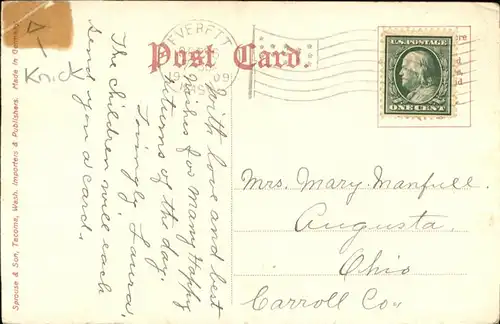 Knick
Post Card.
EVERETT
1909
U.S. POSTAGE
ONE CENT
With love and best
wishes for many Happy
returns of the day.
Lovingly Laura.
The children will each
send you a card.
Mrs. Mary Manfull
Augusta,
Ohio
Carroll Co.
Sprouse & Son, Tacoma, Wash. Importers & Publishers. Made in Germany